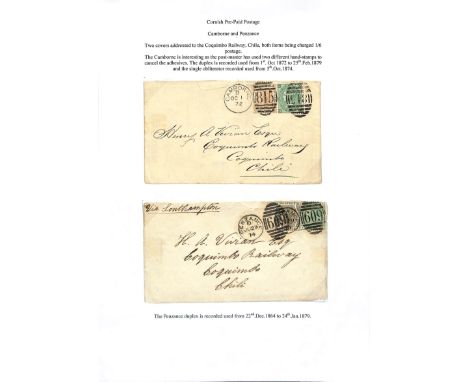 Cornish Pre-Paid Postage
Camborne and Penzance
Two covers addressed to the Coquimbo Railway, Chila, both items being charged 1/6
postage.
The Camborne is interesting as the post-master has used two different hand-stamps to
cancel the adhesives. The duplex is recorded used from 1st. Oct 1872 to 25th.Feb.1879
and the single obliterator recorded used from 5th.Oct.1874.
CAMBORNE
OC 1
72
815
Henry A Vivian Esqre
Coquimbo Railway
Coquimbo
Chili
Via Southampton
PENZANCE
74
609
H. A. Vivian Esq
Coquimbo Railway
Coquimbo
Chili
The Penzance duplex is recorded used from 22nd.Dec.1864 to 24th.Jan.1879.